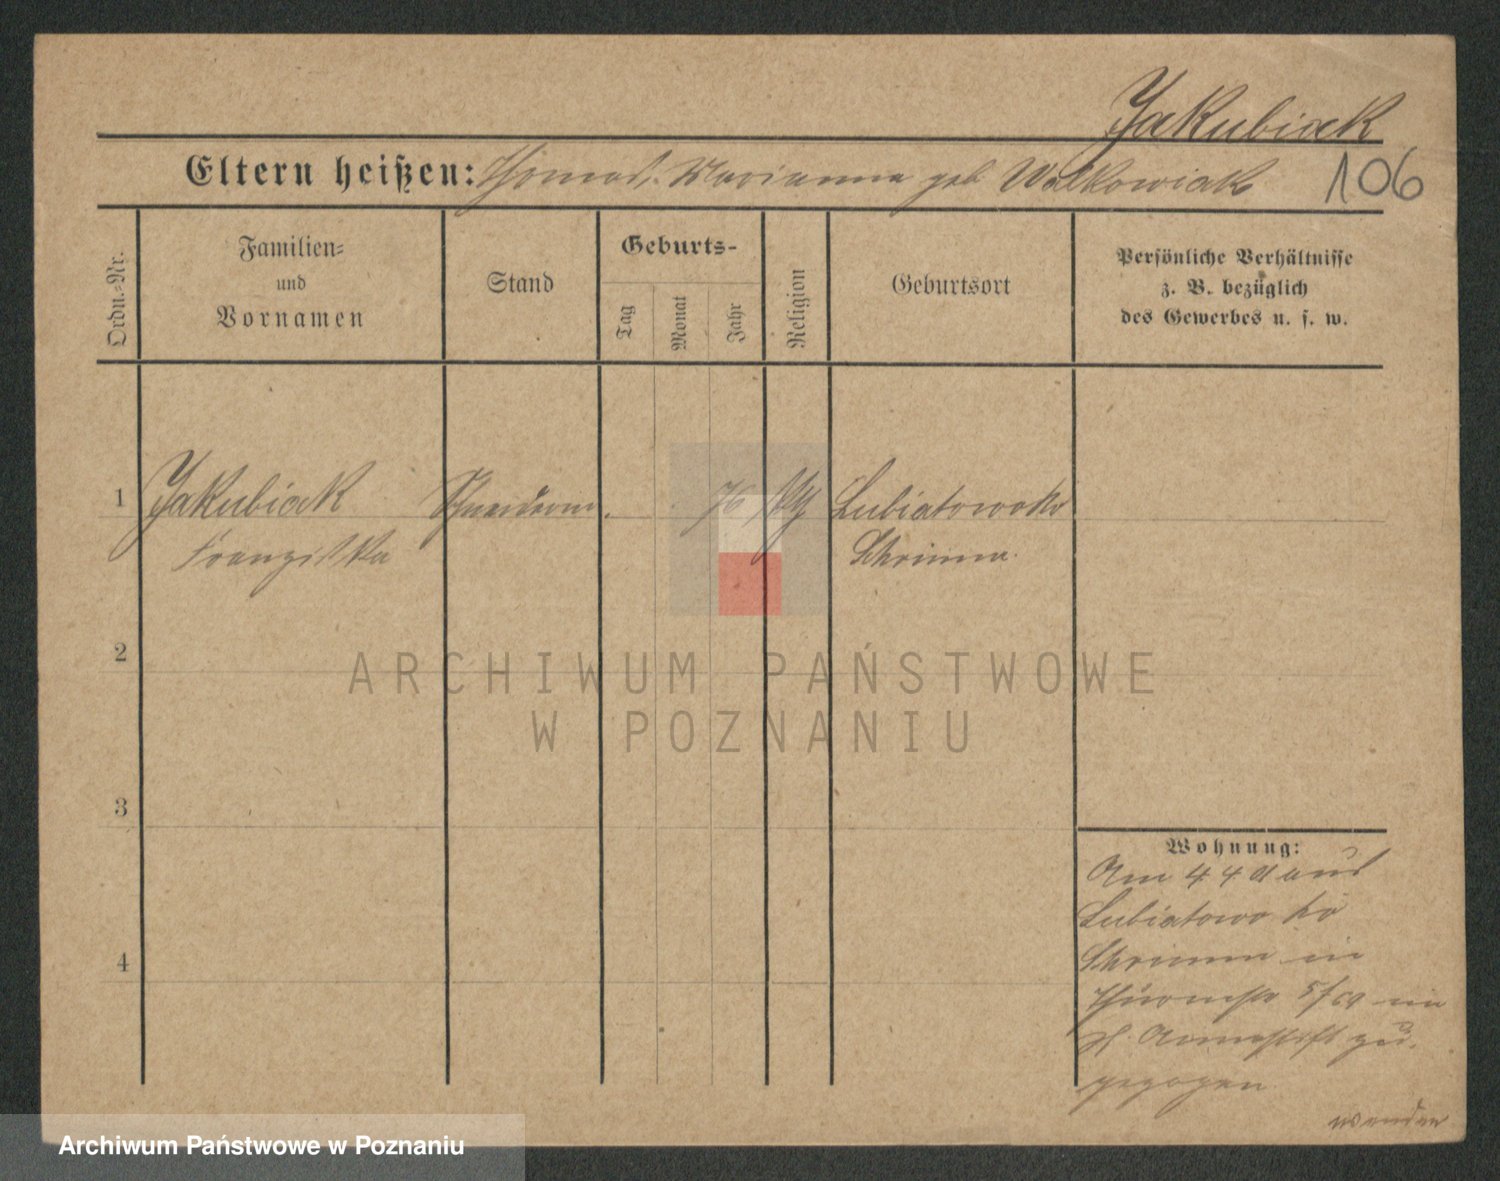 Jakubiak
Eltern heißen: Thomas, Marianna geb Walkowiak
106
Ordn.-Nr.
Familien-
und
Vornamen
Stand
Geburts-
Tag
Monat
Jahr
Religion
Geburtsort
Persönliche Verhältnisse
z. B. bezüglich
des Gewerbes u. s. w.
1 Jakubiak Schneiderin 76 Lubiatowko
Franziska Schrimm
2
3
4
Wohnung:
Am 4. 4. aus
Lubiatowo
Schrimm in
zu-
gezogen
wenden
ARCHIWUM PAŃSTWOWE
W POZNANIU
Archiwum Państwowe w Poznaniu